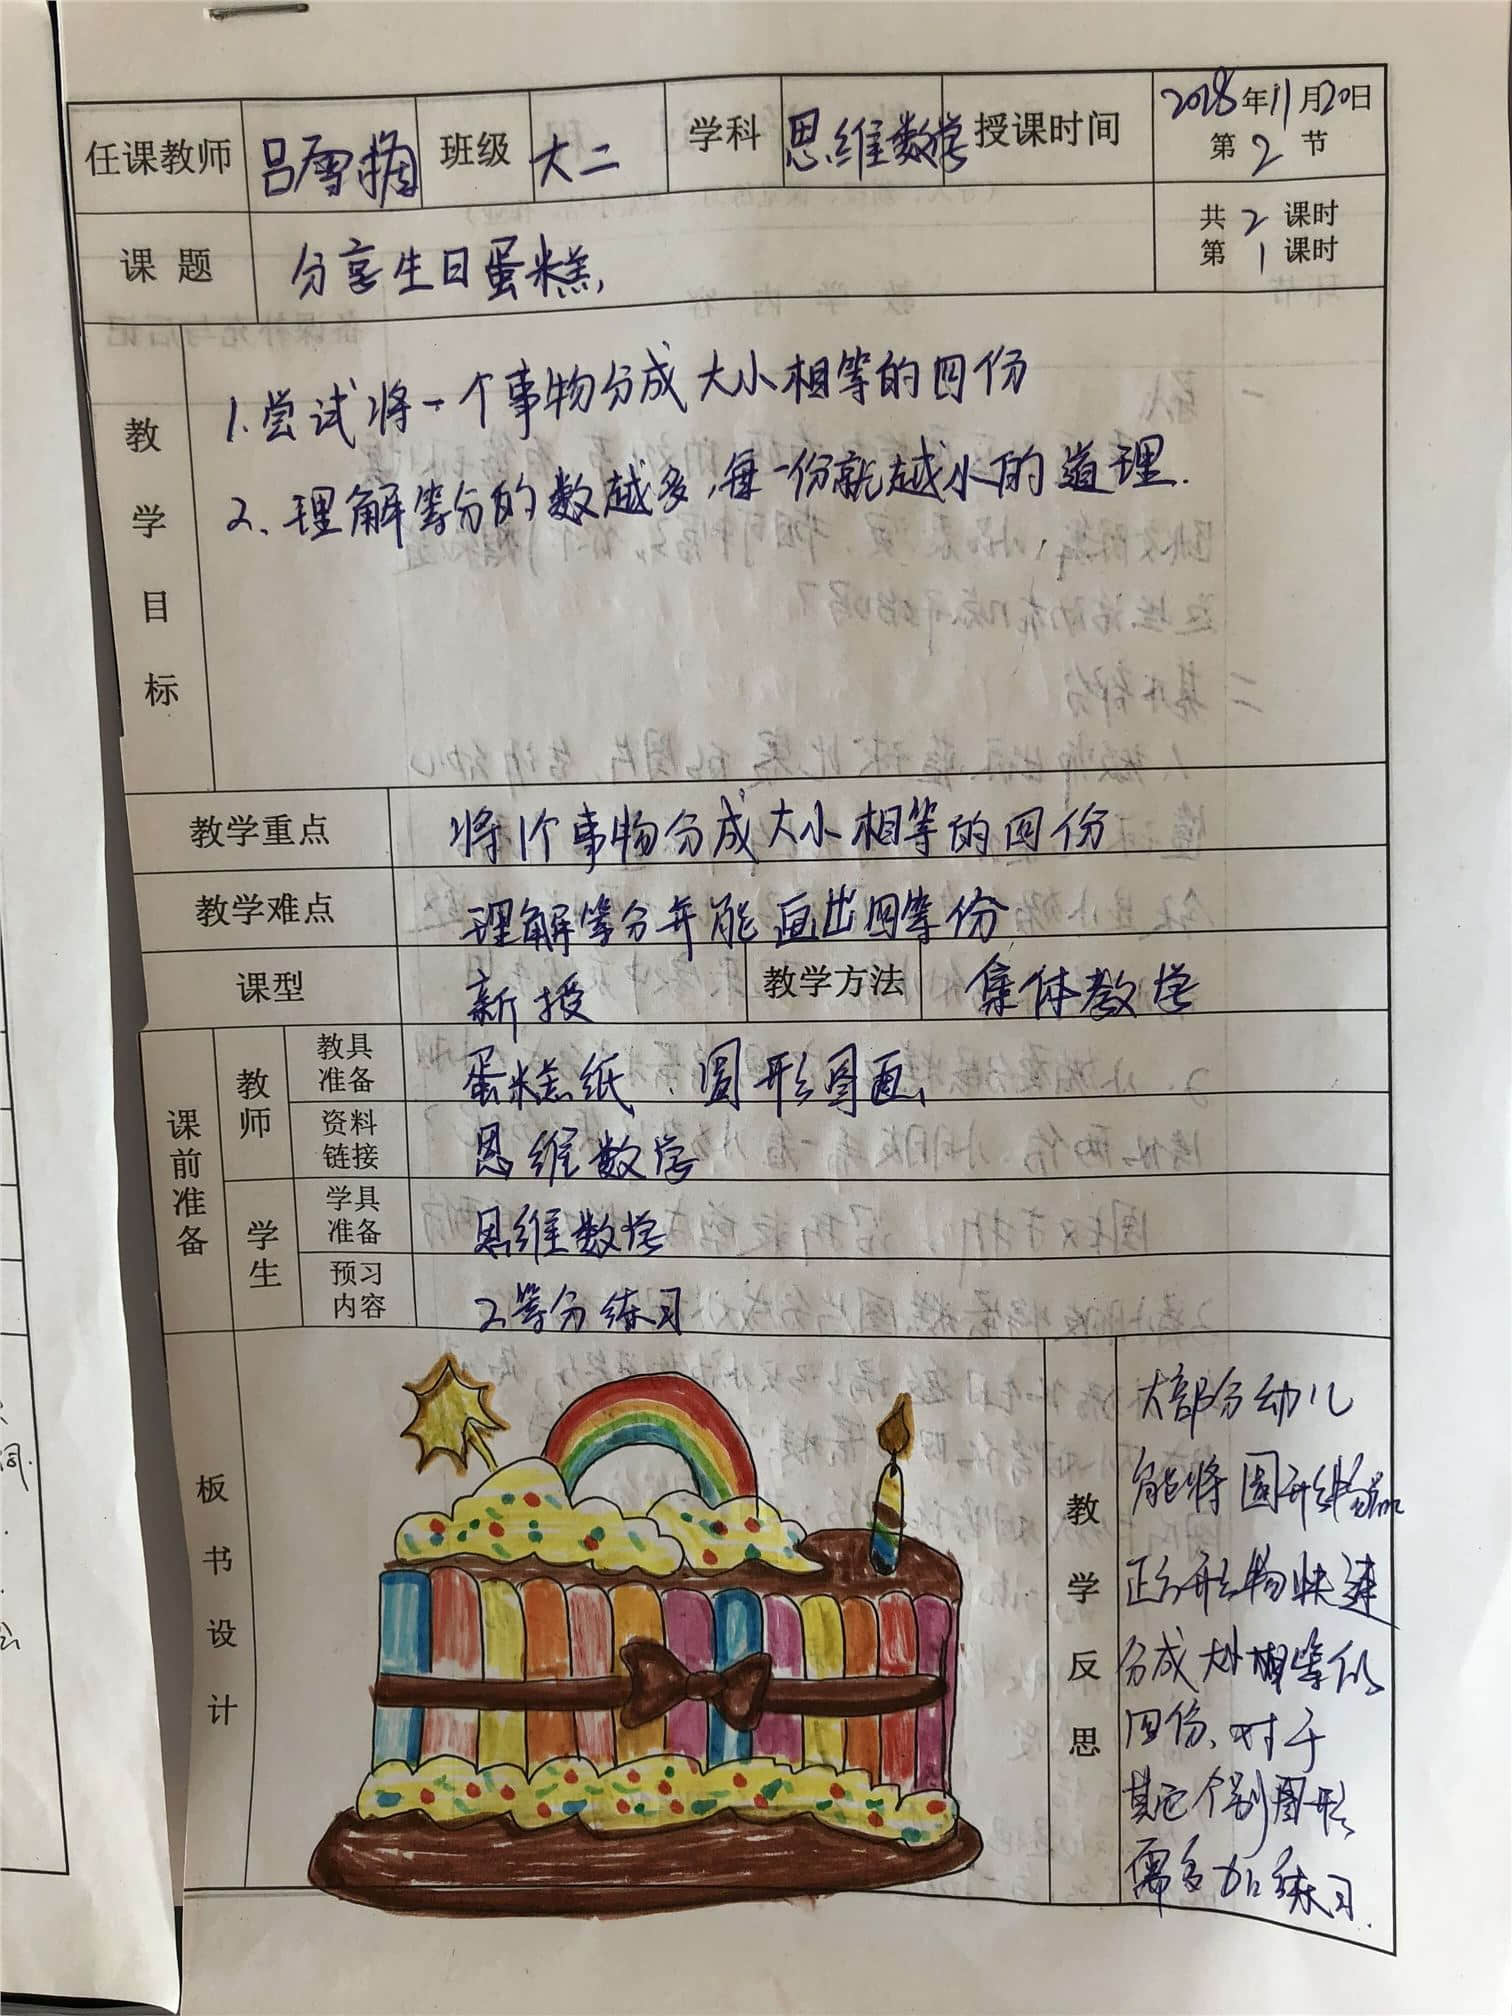 任课教师 吕雪 班级 大二 学科 思维数学 授课时间 2018年11月20日
第 2 节
课题 分享生日蛋糕
共 2 课时
第 1 课时
教学目标
1.尝试将一个事物分成大小相等的四份
2、理解等分的数越多,每一份就越小的道理.
教学重点 将1个事物分成大小相等的四份
教学难点 理解等分并能画出四等份
课型 新授 教学方法 集体教学
课前准备
教师 教具准备 蛋糕纸、圆形图画
资料链接 思维数学
学生 学具准备 思维数学
预习内容 2等分练习
板书设计
教学反思
大部分幼儿
能将圆形物品
正方形物快速
分成大小相等的
四份、对于
其它个别图形
需多加练习.